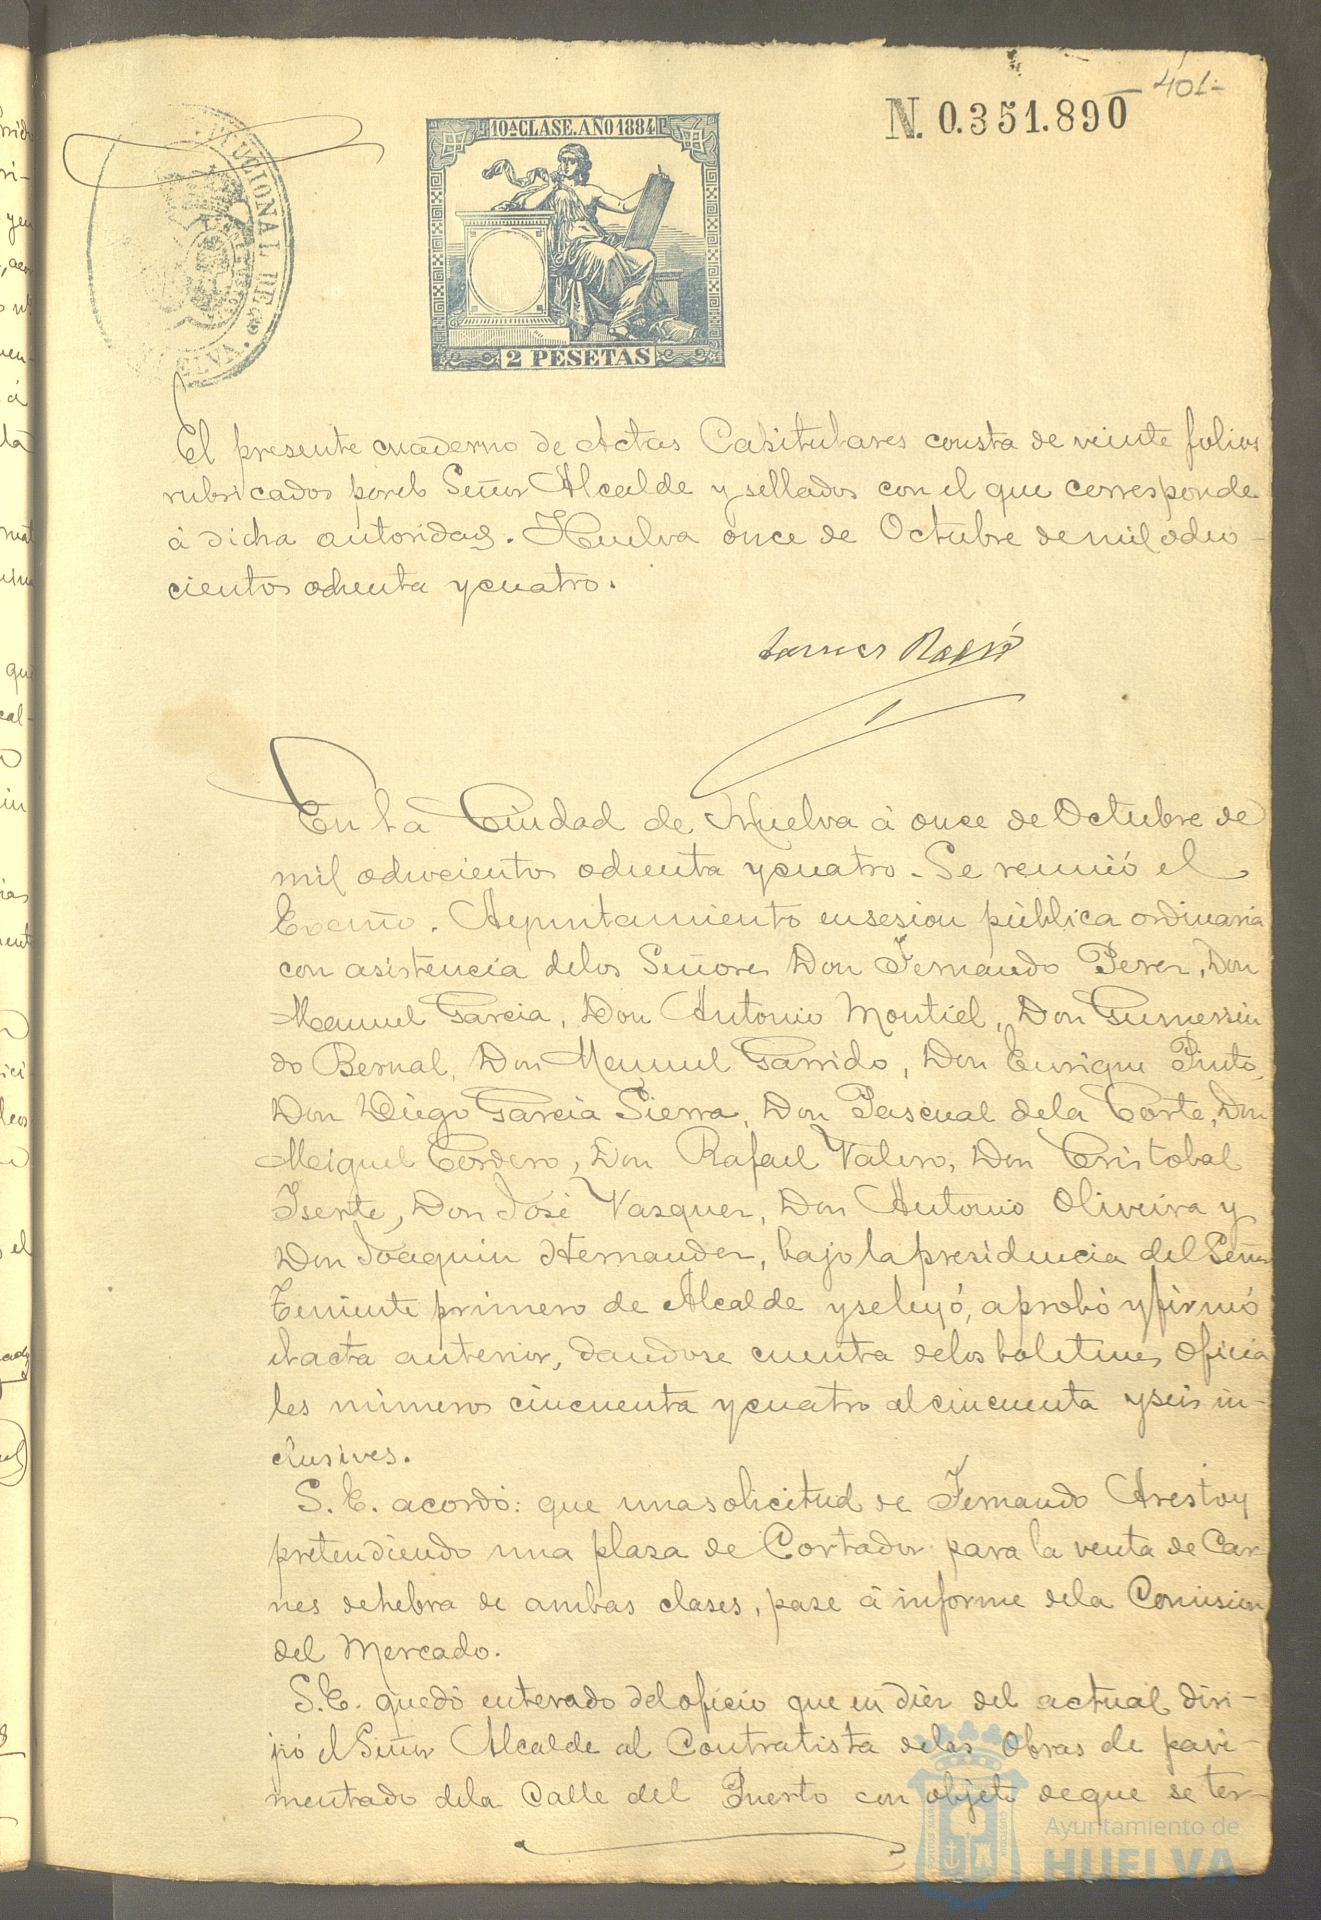 401-
N. 0.351.890
10ª CLASE. AÑO 1884
2 PESETAS
El presente cuaderno de Actas Capitulares consta de veinte folios
rubricados por el Señor Alcalde y sellados con el que corresponde
á dicha autoridad. Huelva once de Octubre de mil ocho-
cientos ochenta y cuatro.
En la Ciudad de Huelva á once de Octubre de
mil ochocientos ochenta y cuatro. Se reunió el
Excmo. Ayuntamiento en sesion pública ordinaria
con asistencia de los Señores Don Fernando Perez, Don
Manuel Garcia, Don Antonio Montiel, Don Gumersin
do Bernal, Don Manuel Garrido, Don Enrique Pinto,
Don Diego Garcia Sierra, Don Pascual de la Corte, Don
Miguel Cordero, Don Rafael Valero, Don Cristobal
Iserte, Don José Vazquez, Don Antonio Oliveira y
Don Joaquin Hernandez, bajo la presidencia del Señor
Teniente primero de Alcalde y se leyó, aprobó y firmó
el acta anterior, dandose cuenta de los boletines Oficia
les números cincuenta y cuatro al cincuenta y seis in-
clusives.
S. E. acordó: que una solicitud de Fernando Arestoy
pretendiendo una plaza de Cortador para la venta de Car-
nes de hebra de ambas clases, pase á informe de la Comision
del Mercado.
S. E. quedó enterado del oficio que en diez del actual diri-
jió el Señor Alcalde al Contratista de las Obras de pavi-
mentado de la Calle del Puerto con objeto de que se ter-
Ayuntamiento de
HUELVA